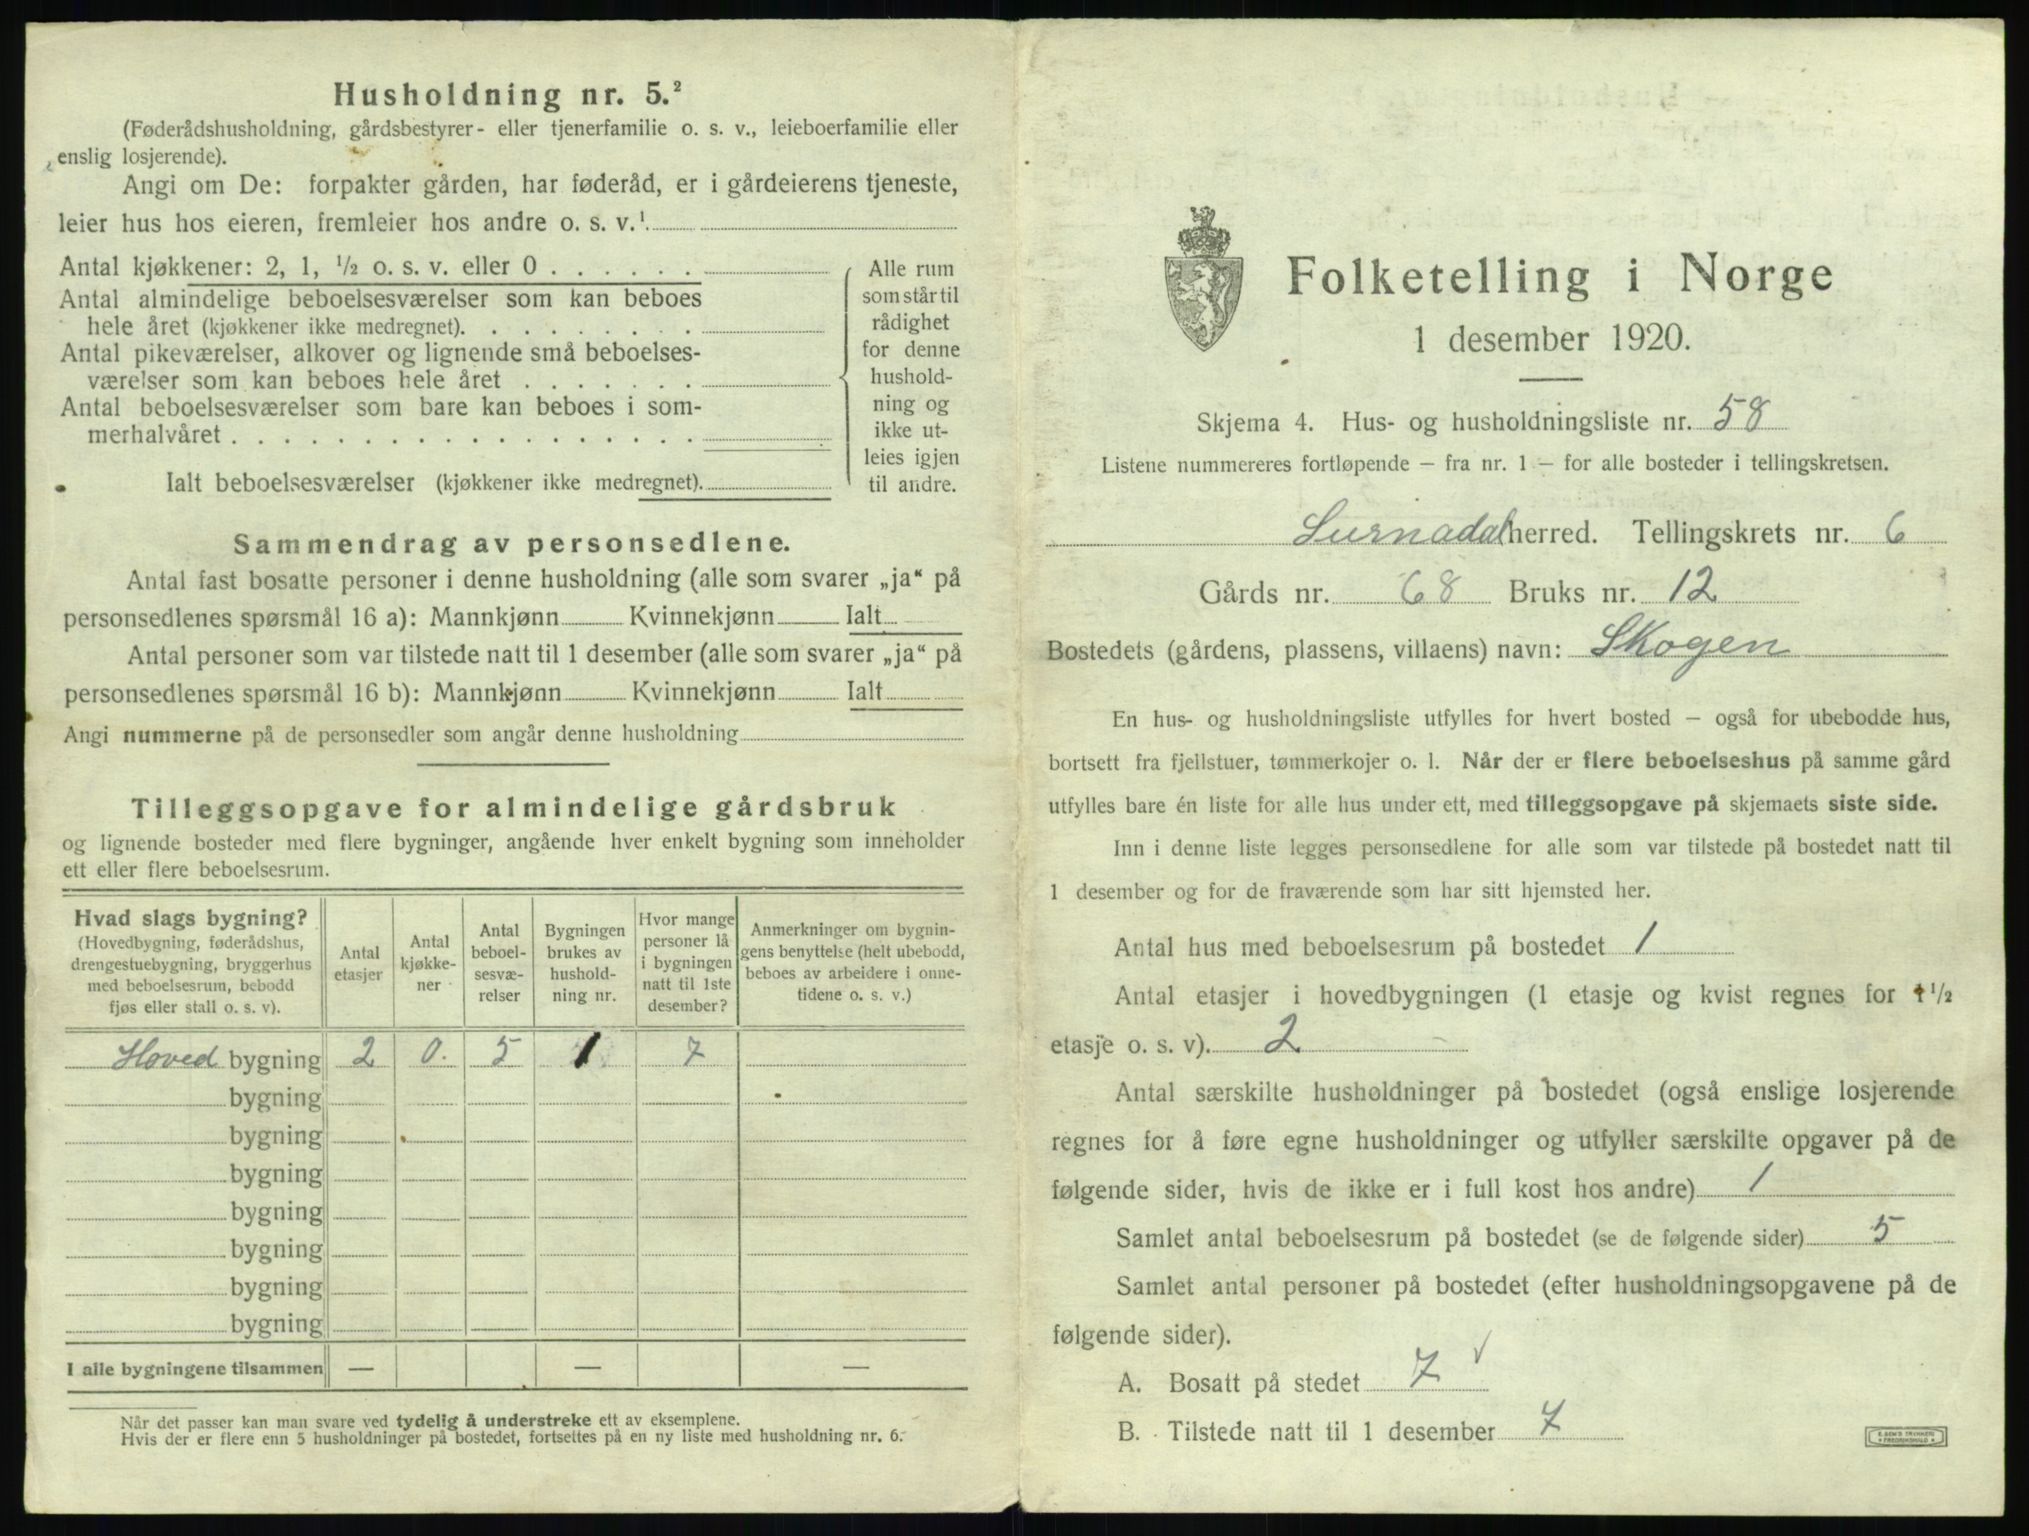 Husholdning nr. 5.²
(Føderådshusholdning, gårdsbestyrer- eller tjenerfamilie o. s. v., leieboerfamilie eller
enslig losjerende).
Angi om De: forpakter gården, har føderåd, er i gårdeierens tjeneste,
leier hus hos eieren, fremleier hos andre o. s. v.¹
Antal kjøkkener: 2, 1, ½ o. s. v. eller 0 . . . . . .
Antal almindelige beboelsesværelser som kan beboes
hele året (kjøkkener ikke medregnet). . . . . . . . .
Antal pikeværelser, alkover og lignende små beboelses-
værelser som kan beboes hele året . . . . . . .
Antal beboelsesværelser som bare kan beboes i som-
merhalvåret . . . . . . . . . . . . . . . . . .
Ialt beboelsesværelser (kjøkkener ikke medregnet).
Alle rum
som står til
rådighet
for denne
hushold-
ning og
ikke ut-
leies igjen
til andre.
Sammendrag av personsedlene.
Antal fast bosatte personer i denne husholdning (alle som svarer „ja“ på
personsedlenes spørsmål 16 a): Mannkjønn Kvinnekjønn Ialt
Antal personer som var tilstede natt til 1 desember (alle som svarer „ja“ på
personsedlenes spørsmål 16 b): Mannkjønn Kvinnekjønn Ialt
Angi nummerne på de personsedler som angår denne husholdning
Tilleggsopgave for almindelige gårdsbruk
og lignende bosteder med flere bygninger, angående hver enkelt bygning som inneholder
ett eller flere beboelsesrum.
Hvad slags bygning?
(Hovedbygning, føderådshus,
drengestuebygning, bryggerhus
med beboelsesrum, bebodd
fjøs eller stall o. s. v).
Antal
etasjer
Antal
kjøkke-
ner
Antal
beboel-
sesvæ-
relser
Bygningen
brukes av
hushold-
ning nr.
Hvor mange
personer lå
i bygningen
natt til 1ste
desember?
Anmerkninger om bygnin-
gens benyttelse (helt ubebodd,
beboes av arbeidere i onne-
tidene o. s. v.)
Hoved bygning 2 0. 5 1 7
bygning
bygning
bygning
bygning
bygning
bygning
bygning
I alle bygningene tilsammen — — —
Når det passer kan man svare ved tydelig å understreke ett av eksemplene.
Hvis der er flere enn 5 husholdninger på bostedet, fortsettes på en ny liste med husholdning nr. 6.
Folketelling i Norge
1 desember 1920.
Skjema 4. Hus- og husholdningsliste nr. 58
Listene nummereres fortløpende — fra nr. 1 — for alle bosteder i tellingskretsen.
Surnadal herred. Tellingskrets nr. 6
Gårds nr. 68 Bruks nr. 12
Bostedets (gårdens, plassens, villaens) navn: Skogen
En hus- og husholdningsliste utfylles for hvert bosted — også for ubebodde hus,
bortsett fra fjellstuer, tømmerkojer o. l. Når der er flere beboelseshus på samme gård
utfylles bare én liste for alle hus under ett, med tilleggsopgave på skjemaets siste side.
Inn i denne liste legges personsedlene for alle som var tilstede på bostedet natt til
1 desember og for de fraværende som har sitt hjemsted her.
Antal hus med beboelsesrum på bostedet 1
Antal etasjer i hovedbygningen (1 etasje og kvist regnes for 1½
etasje o. s. v). 2
Antal særskilte husholdninger på bostedet (også enslige losjerende
regnes for å føre egne husholdninger og utfyller særskilte opgaver på de
følgende sider, hvis de ikke er i full kost hos andre) 1
Samlet antal beboelsesrum på bostedet (se de følgende sider) 5
Samlet antal personer på bostedet (efter husholdningsopgavene på de
følgende sider).
A. Bosatt på stedet 7 ✓
B. Tilstede natt til 1 desember 7